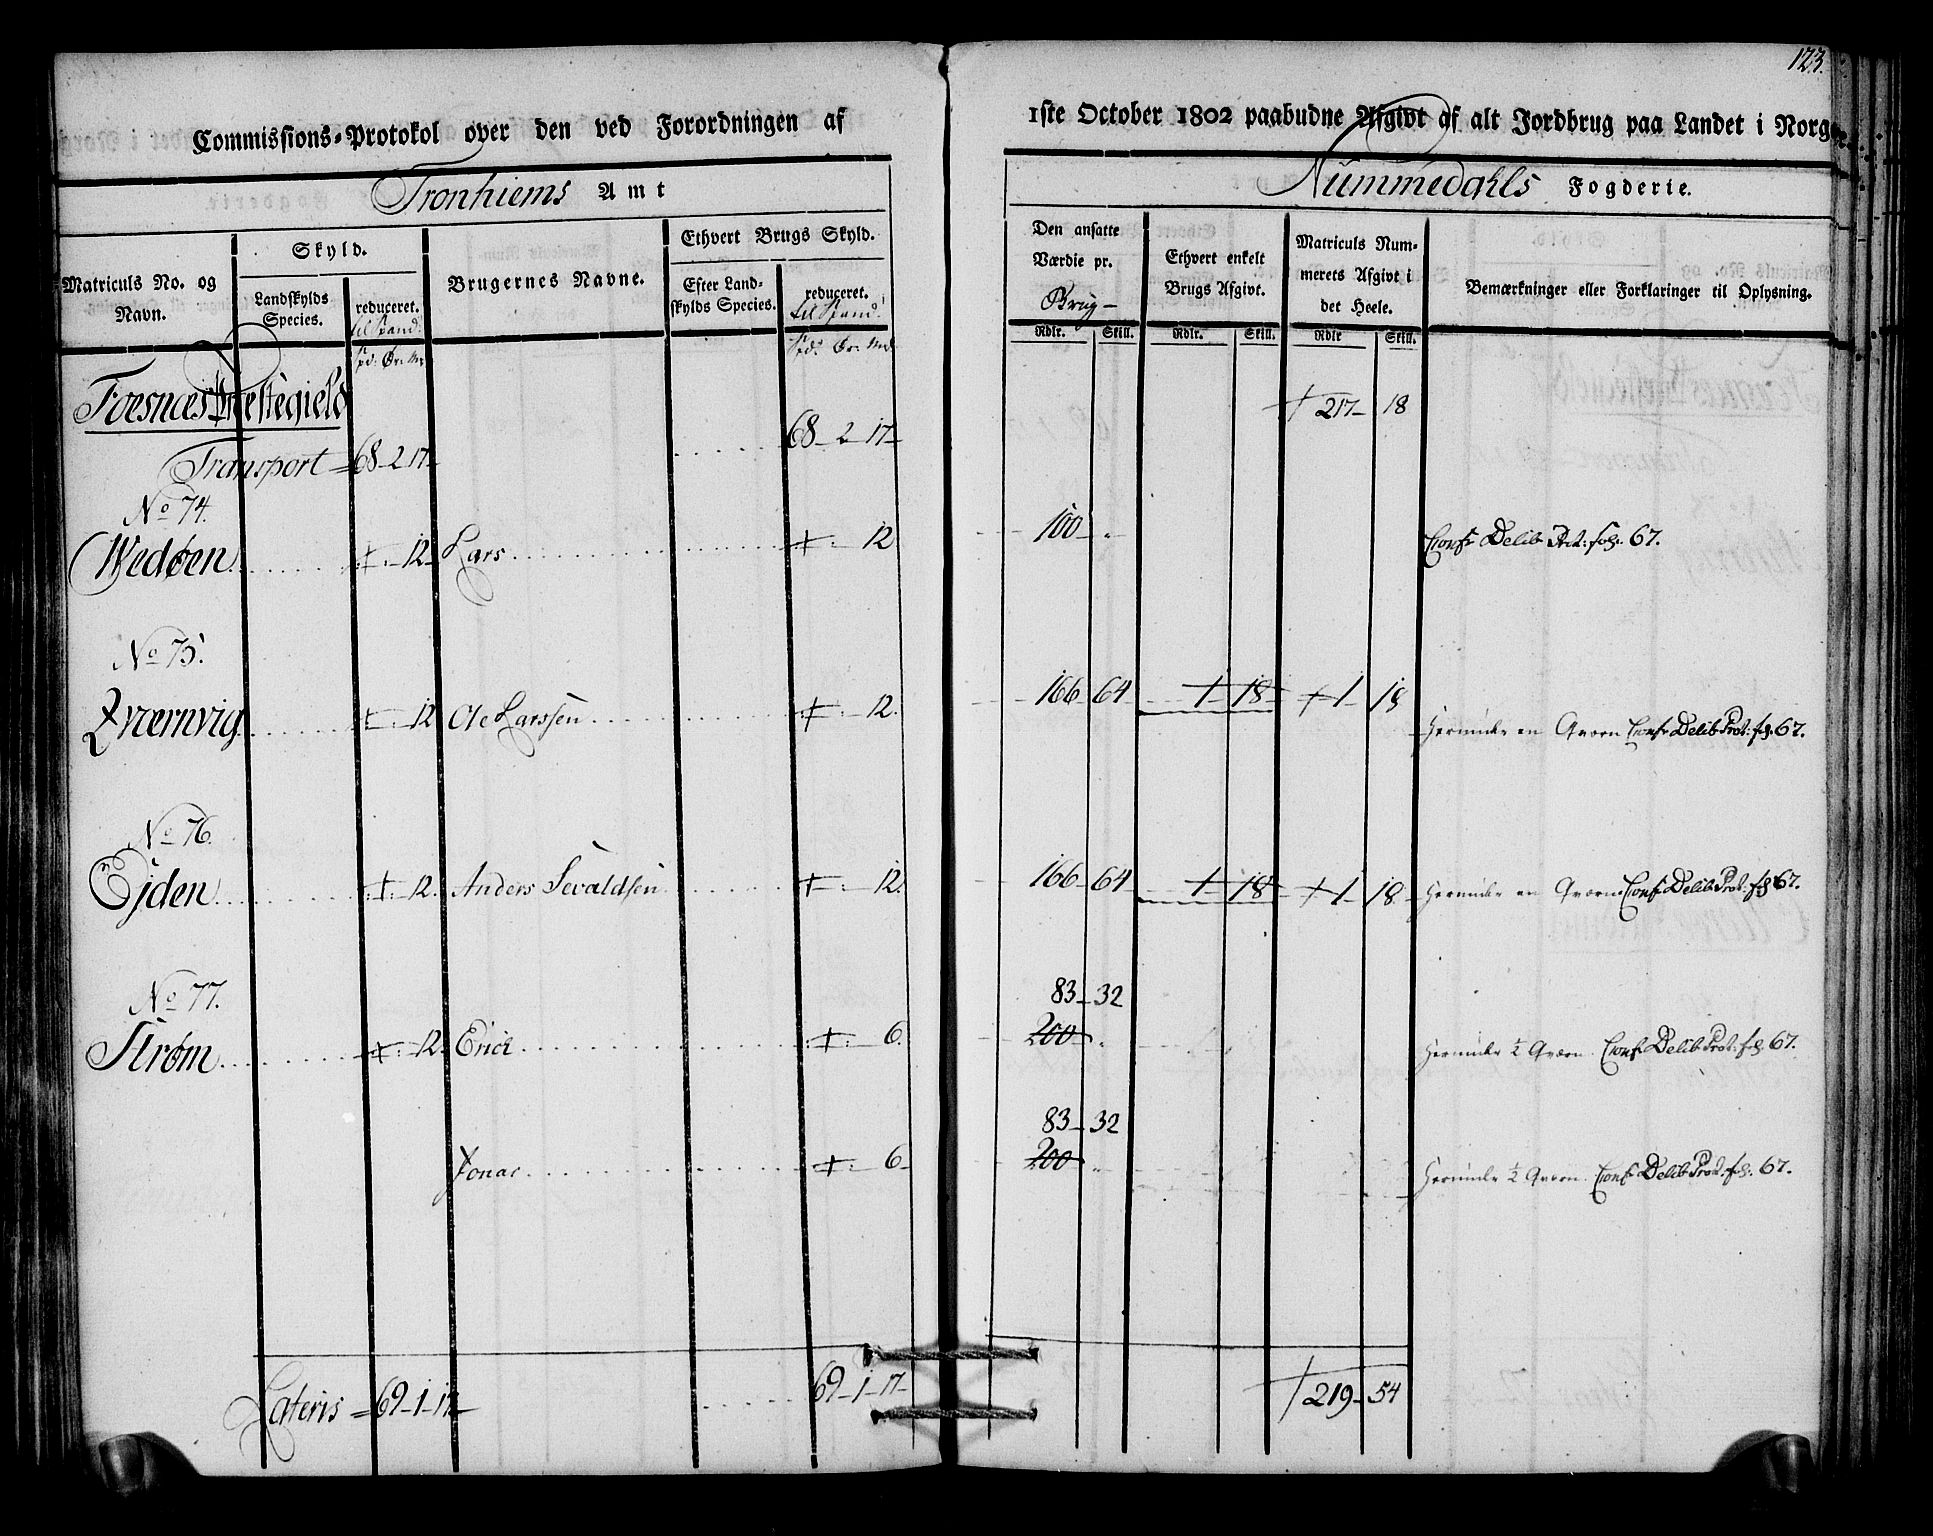 123.
Commissions-Protokol over den ved Forordningen af 1ste October 1802 paabudne Afgivt af alt Jordbrug paa Landet i Norge
Tronhiems Amt
Nummedahls Fogderie.
Matriculs No. og Navn.
Skyld.
Landskylds Species.
reduceret. til Spand.
Brugernes Navne.
Ethvert Brugs Skyld.
Efter Landskylds Species.
reduceret. til Spand.
Den ansatte Værdie pr. Brug
Ethvert enkelt Brugs Afgivt.
Matriculs Nummerets Afgivt i det Heele.
Bemærkninger eller Forklaringer til Oplysning.
Rdlr. Skill. Rdlr. Skill. Rdlr Skill.
Foesnæs Præstegield
† 217 18
Transport 68-2-17 68-2-17
No 74.
Wedøen 12 Lars 12 100 Conf: Delib Prt: fol. 67.
No 75.
Qværnvig 12 Ole Larssen 12. 166 64 1 18 1 18 Herunder en Qværn Conf: Delib Prot: fol. 67.
No 76.
Ejden 12. Anders Sevaldsen 12. 166 64 1 18 1 18 Herunder en Qværn Conf: Delib Prot: fol 67.
No 77.
83 32
Strøm 12. Erich 6. 200 Herunder ½ Qværn. Conf: Delib Prot: fol 67.
83 32
Jonas 6 200 Herunder ½ Qværn. Conf: Delib Prot: fol. 67.
Lateris 69-1-17 69-1-17 † 219 54